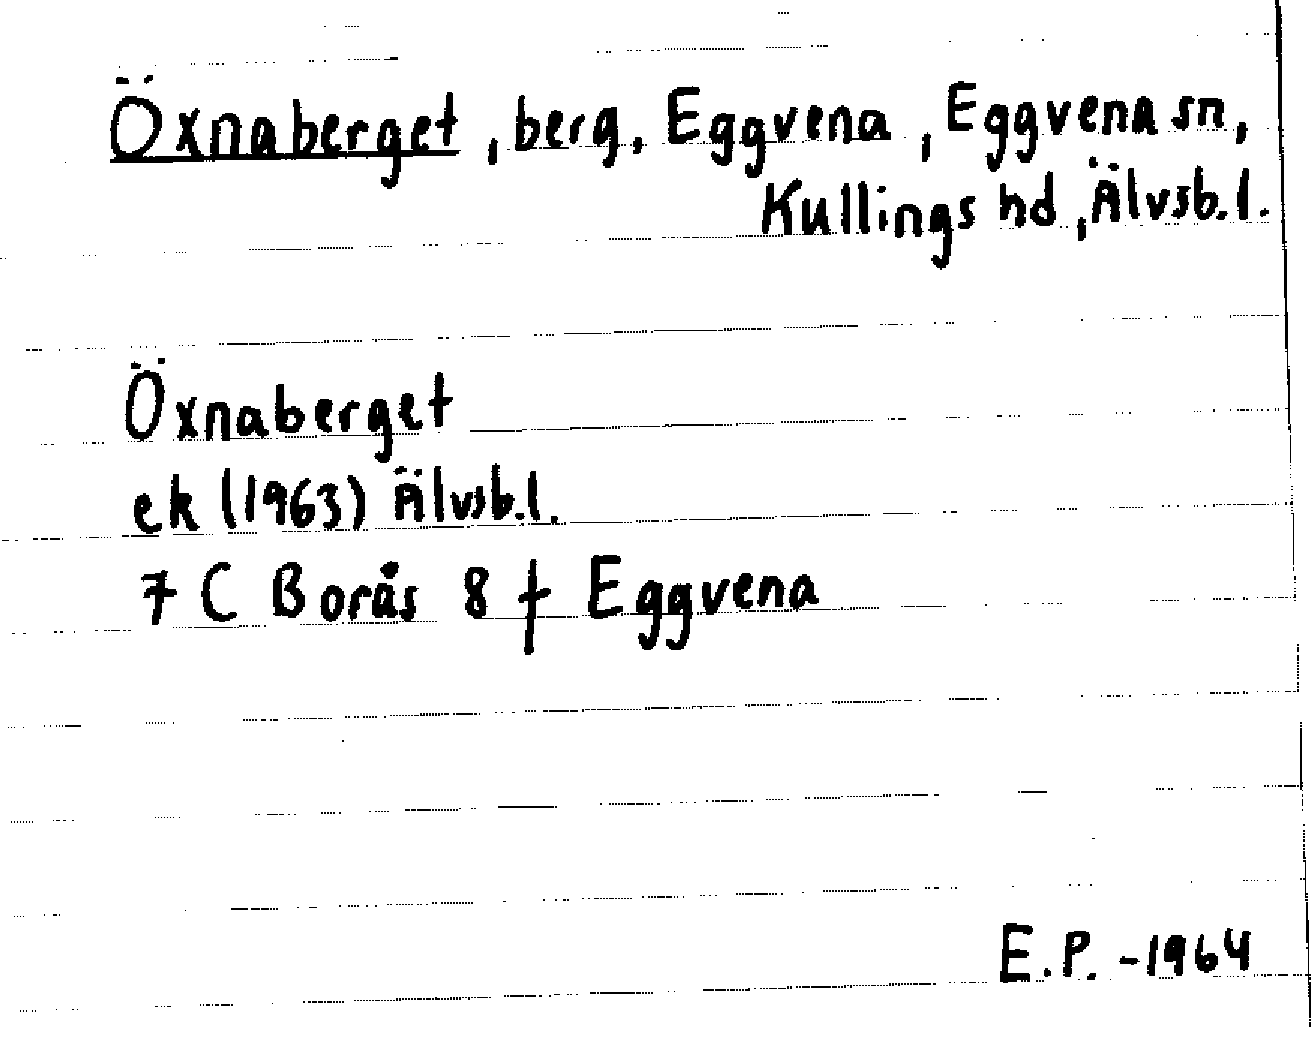 Öxnaberget, berg, Eggvena, Eggvena sn,
Kullings hd, Älvsb.l.
Öxnaberget
ek (1963) Älvsb.l.
7 C Borås 8 f Eggvena
E.P. -1964